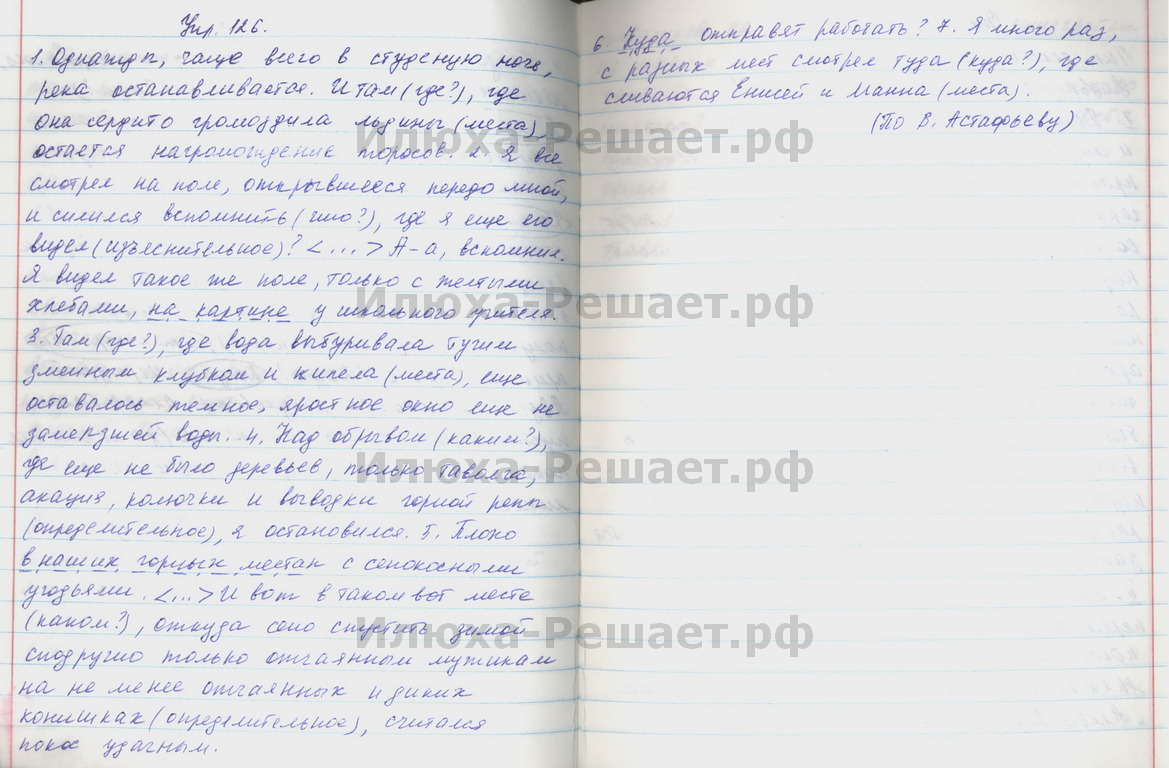 Упр. 126.
1. Однажды, чаще всего в студеную ночь,
река останавливается. И там (где?), где
она сердито громоздила льдины (места),
остается нагромождение торосов. 2. Я все
смотрел на поле, открывшееся передо мной,
и силился вспомнить (что?), где я еще его
видел (изъяснительное)? <...> А-а, вспомнил.
Я видел такое же поле, только с желтыми
хлебами, на картине у школьного учителя.
3. Там (где?), где вода выбуривала тугим
змеиным клубком и кипела (места), еще
оставалось темное, яростное окно еще не
замерзшей воды. 4. Над обрывом (каким?),
где еще не было деревьев, только таволга,
акация, колючки и выводки горной репы
(определительное), я остановился. 5. Плохо
в наших горных местах с сенокосными
угодьями. <...> И вот в таком вот месте
(каком?), откуда сено спустить зимой
сподручно только отчаянным мужикам
на не менее отчаянных и диких
конишках (определительное), считался
покос удачным.
6. Куда отправят работать? 7. Я много раз,
с разных мест смотрел туда (куда?), где
сливаются Енисей и Манна (места).
(По В. Астафьеву)
Илюха-Решает.рф
Илюха-Решает.рф
Илюха-Решает.рф
Илюха-Решает.рф